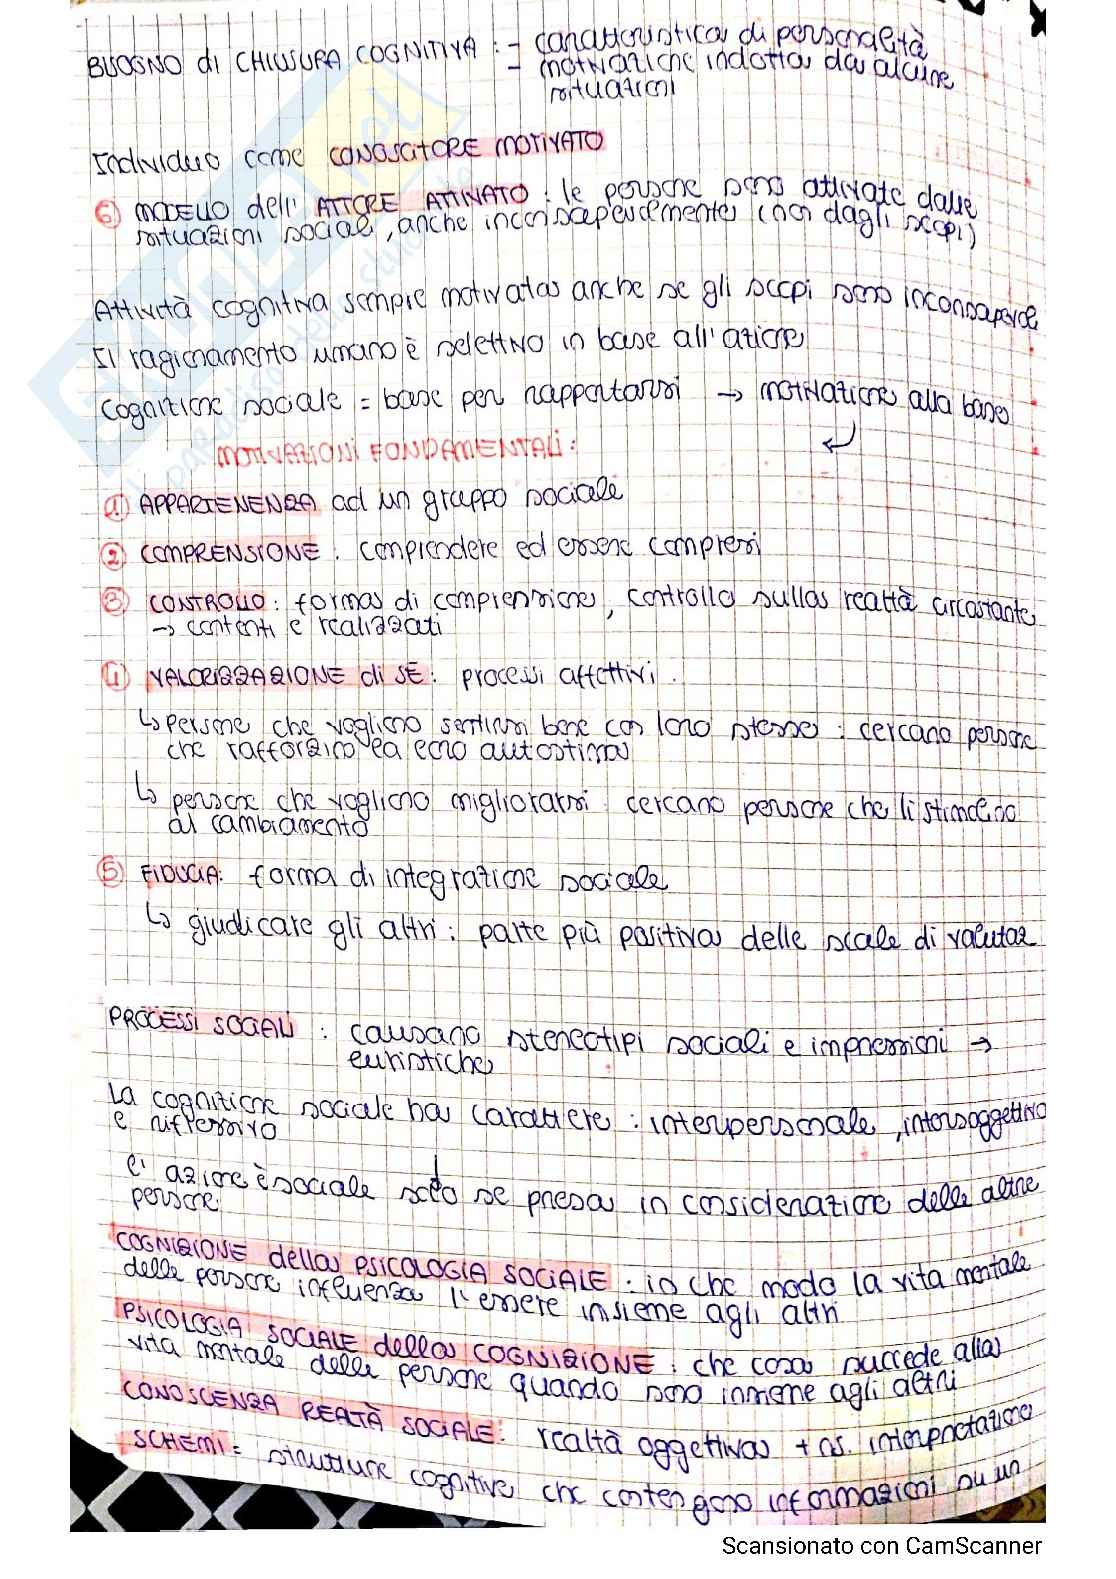 BISOGNO di CHIUSURA COGNITIVA : - caratteristica di personalità
- motivazione indotta da alcune
situazioni
Individuo come CONOSCITORE MOTIVATO
6) MODELLO dell' ATTORE ATTIVATO : le persone sono attivate dalle
situazioni sociali, anche inconsapevolmente (non dagli scopi)
Attività cognitiva sempre motivata anche se gli scopi sono inconsapevoli
Il ragionamento umano è selettivo in base all'azione
Cognizione sociale = base per rapportarsi → motivazione alla base
MOTIVAZIONI FONDAMENTALI :
1) APPARTENENZA ad un gruppo sociale
2) COMPRENSIONE : comprendere ed essere compresi
3) CONTROLLO : forma di comprensione, controllo sulla realtà circostante
→ contenti e realizzati
4) VALORIZZAZIONE di SÉ : processi affettivi.
↳ persone che vogliono sentirsi bene con loro stesse : cercano persone
che rafforzino la loro autostima
↳ persone che vogliono migliorarsi : cercano persone che li stimolino
al cambiamento
5) FIDUCIA : forma di integrazione sociale
↳ giudicare gli altri : parte più positiva delle scale di valutaz
PROCESSI SOCIALI : causano stereotipi sociali e impressioni →
euristiche
La cognizione sociale ha carattere : interpersonale, intersoggettivo
e riflessivo
L' azione è sociale solo se presa in considerazione delle altre
persone
COGNIZIONE della PSICOLOGIA SOCIALE : in che modo la vita mentale
delle persone influenza l'essere insieme agli altri
PSICOLOGIA SOCIALE della COGNIZIONE : che cosa succede alla
vita mentale delle persone quando sono insieme agli altri
CONOSCENZA REALTÀ SOCIALE : realtà oggettiva + ns. interpretazione
SCHEMI = strutture cognitive che contengono informazioni su un
Scansionato con CamScanner